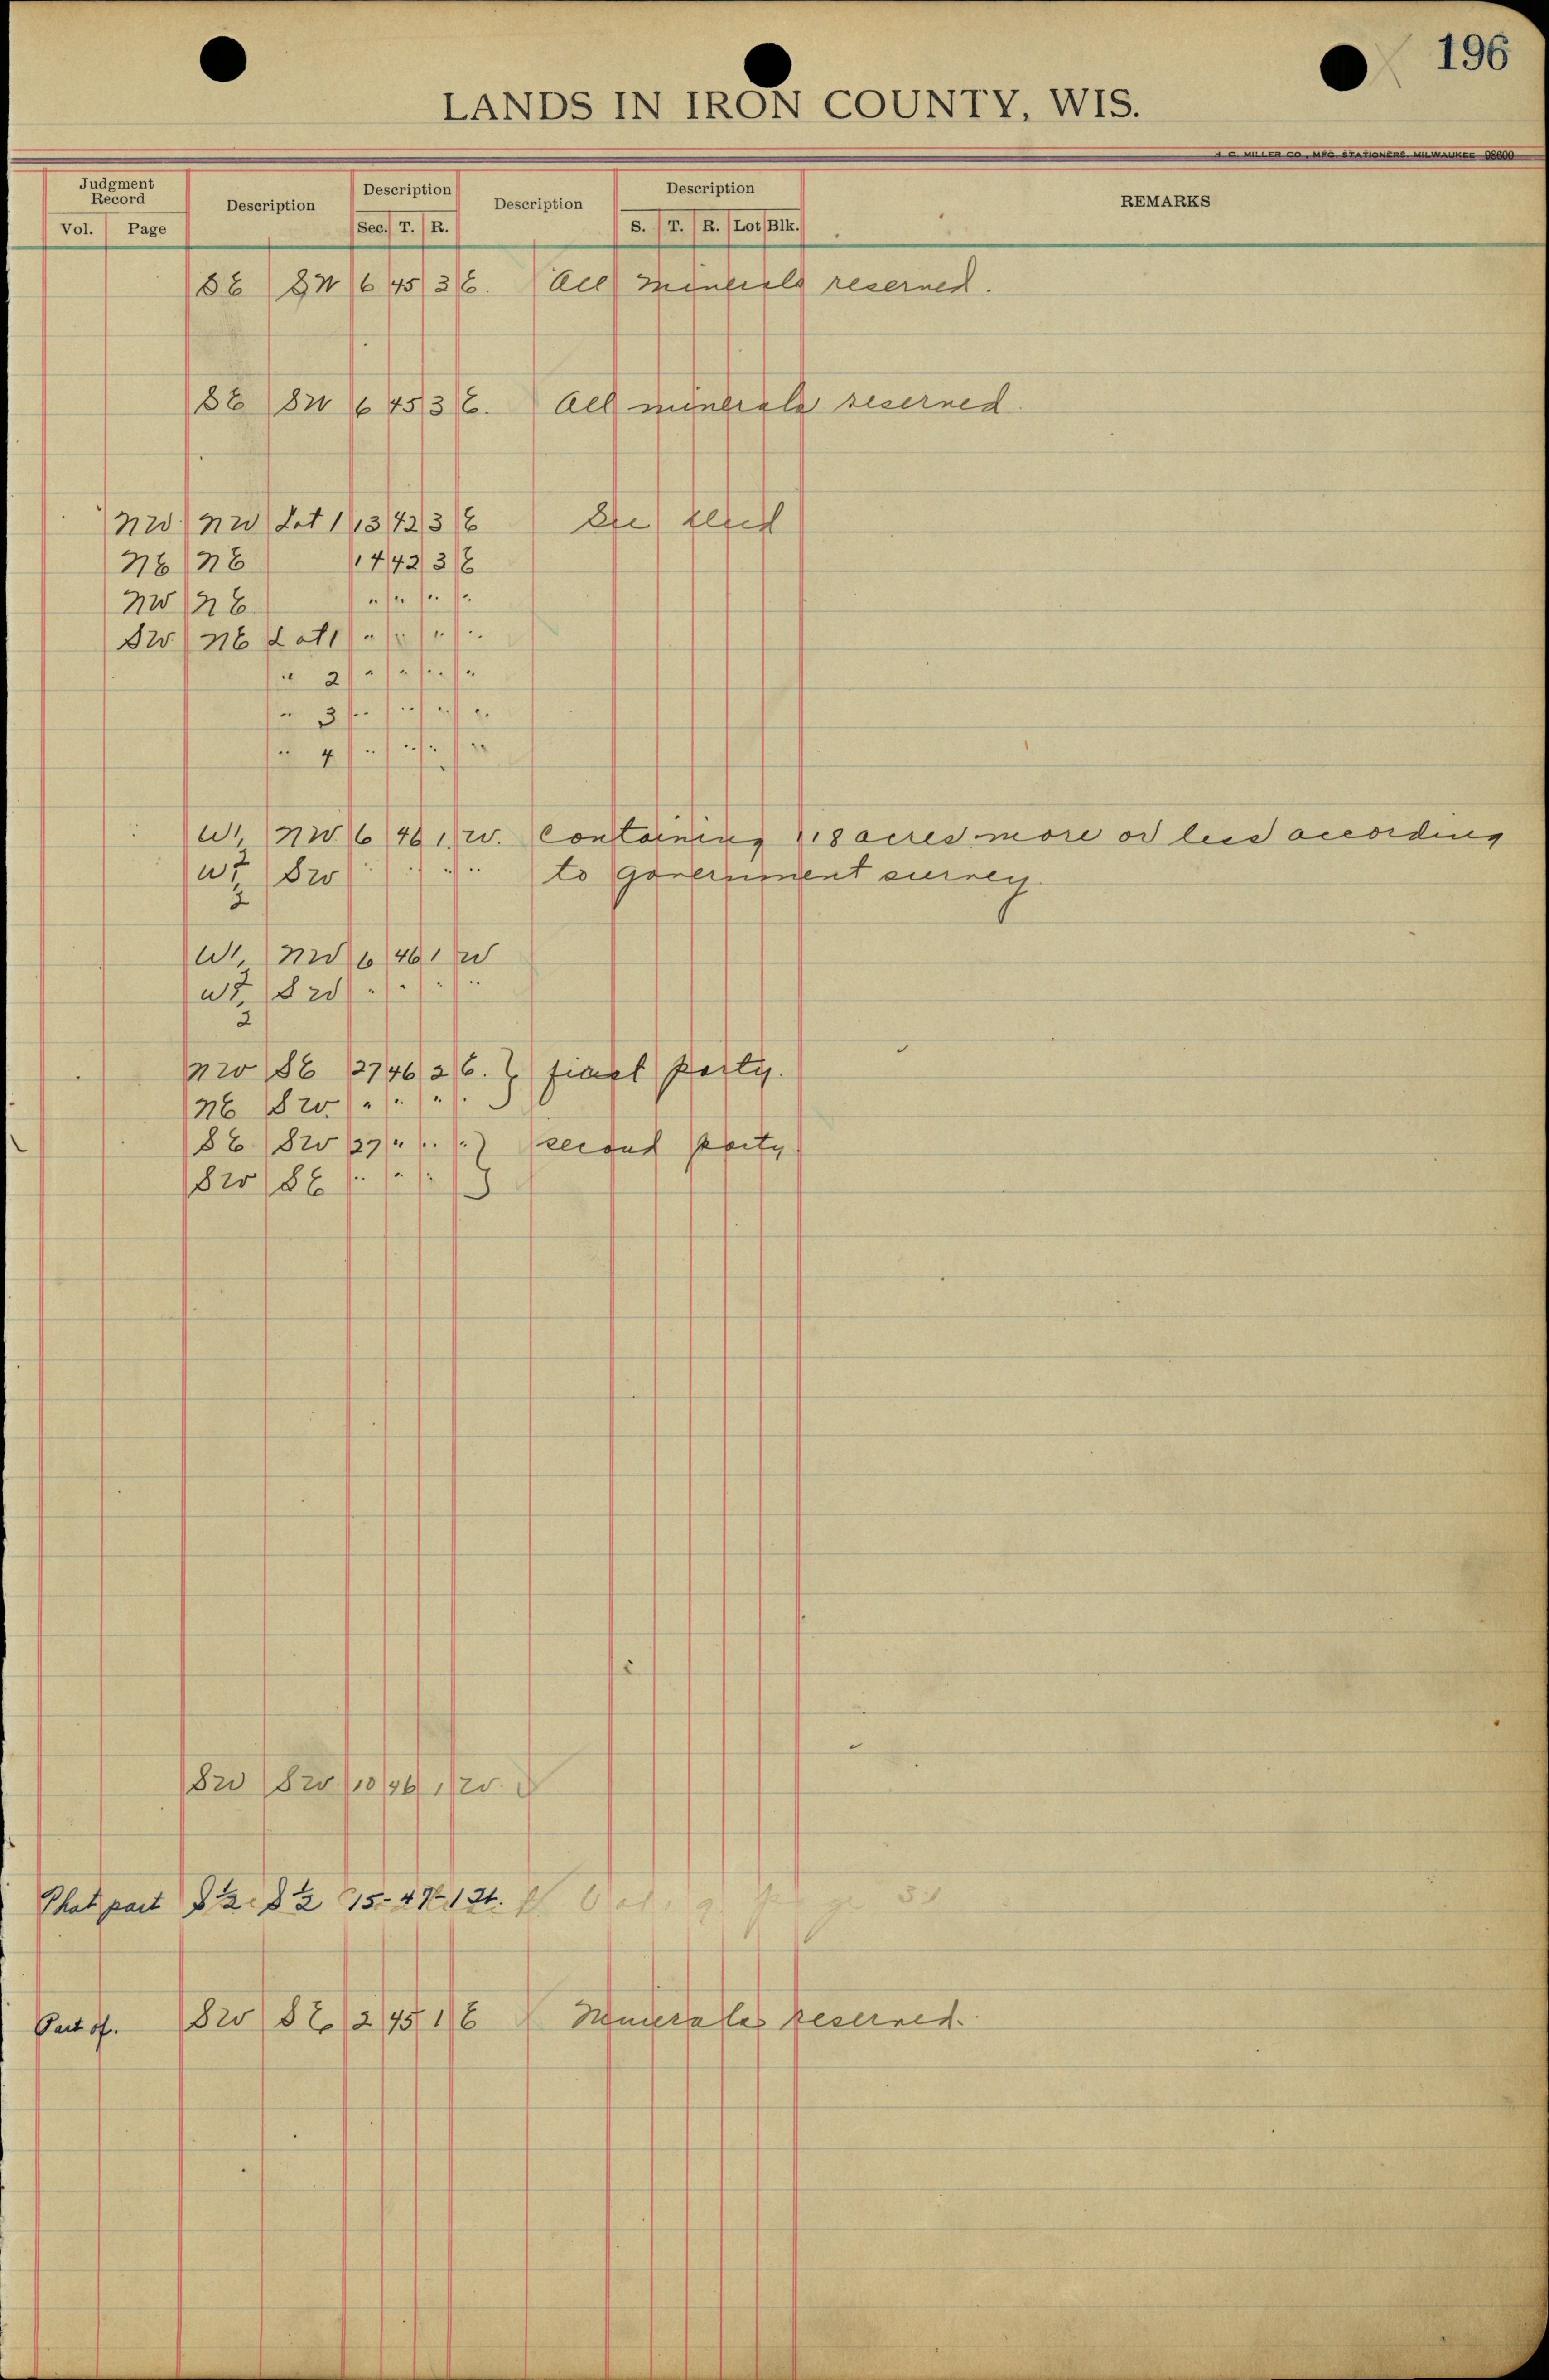 196
LANDS IN IRON COUNTY, WIS.
H. C. MILLER CO., MFG. STATIONERS, MILWAUKEE 98600
Judgment Record Description Description Description Description REMARKS
Vol. Page Sec. T. R. S. T. R. Lot Blk.
SE SW 6 45 3 E. All minerals reserved.
SE SW 6 45 3 E. All minerals reserved
NW NW Lot 1 13 42 3 E See deed
NE NE 14 42 3 E
NW NE " " " "
SW NE Lot 1 " " " "
" 2 " " " "
" 3 " " " "
" 4 " " " "
W 1/2 NW 6 46 1 W. Containing 118 acres more or less according
W 1/2 SW " " " " to government survey.
W 1/2 NW 6 46 1 W
W 1/2 SW " " " "
NW SE 27 46 2 E. } first party.
NE SW. " " " "
SE SW 27 " " " } second party
SW SE " " " "
SW SW 10 46 1 W.
That part S 1/2 S 1/2 15-47-1 E. Vol. 9 page 31
Part of. SW SE 2 45 1 E Minerals reserved.